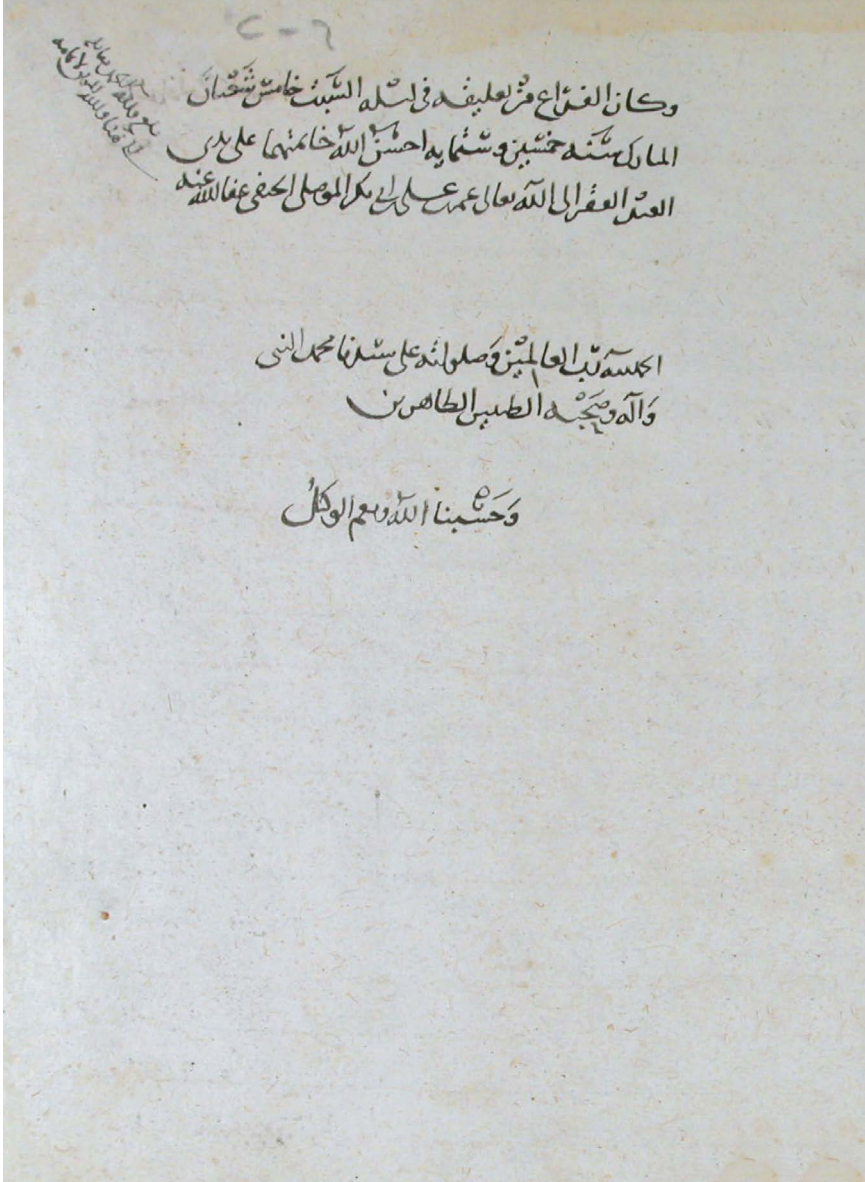 وكان الفراغ من تعليقه في ليلة السبت خامس شعبان
المبارك سنة خمسين وستماية احسن الله خاتمتها على يدي
العبد الفقير الى الله تعالى عمر بن علي بن ابي بكر الموصلي الحنفي عفا الله عنه
الحمد لله رب العالمين وصلواته على سيدنا محمد النبي
وآله وصحبه الطيبين الطاهرين
وحسبنا الله ونعم الوكيل